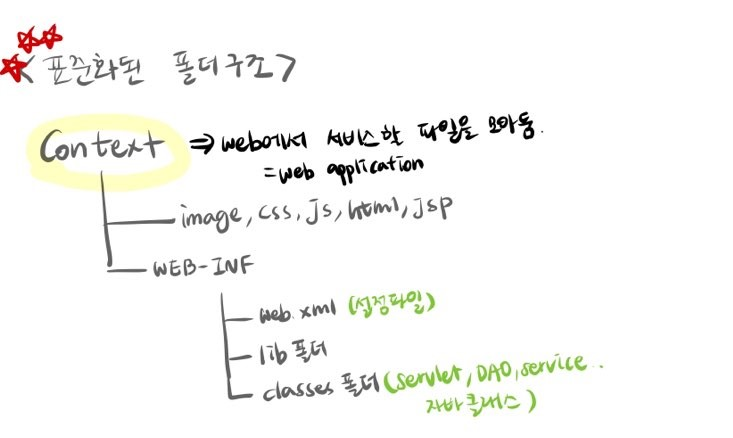 <표준화된 폴더구조>
Context ⇒ web에서 서비스할 파일을 모아둠.
= web application
image, css, js, html, jsp
WEB-INF
web.xml (설정파일)
lib 폴더
classes 폴더 (servlet, DAO, service..
자바클래스)